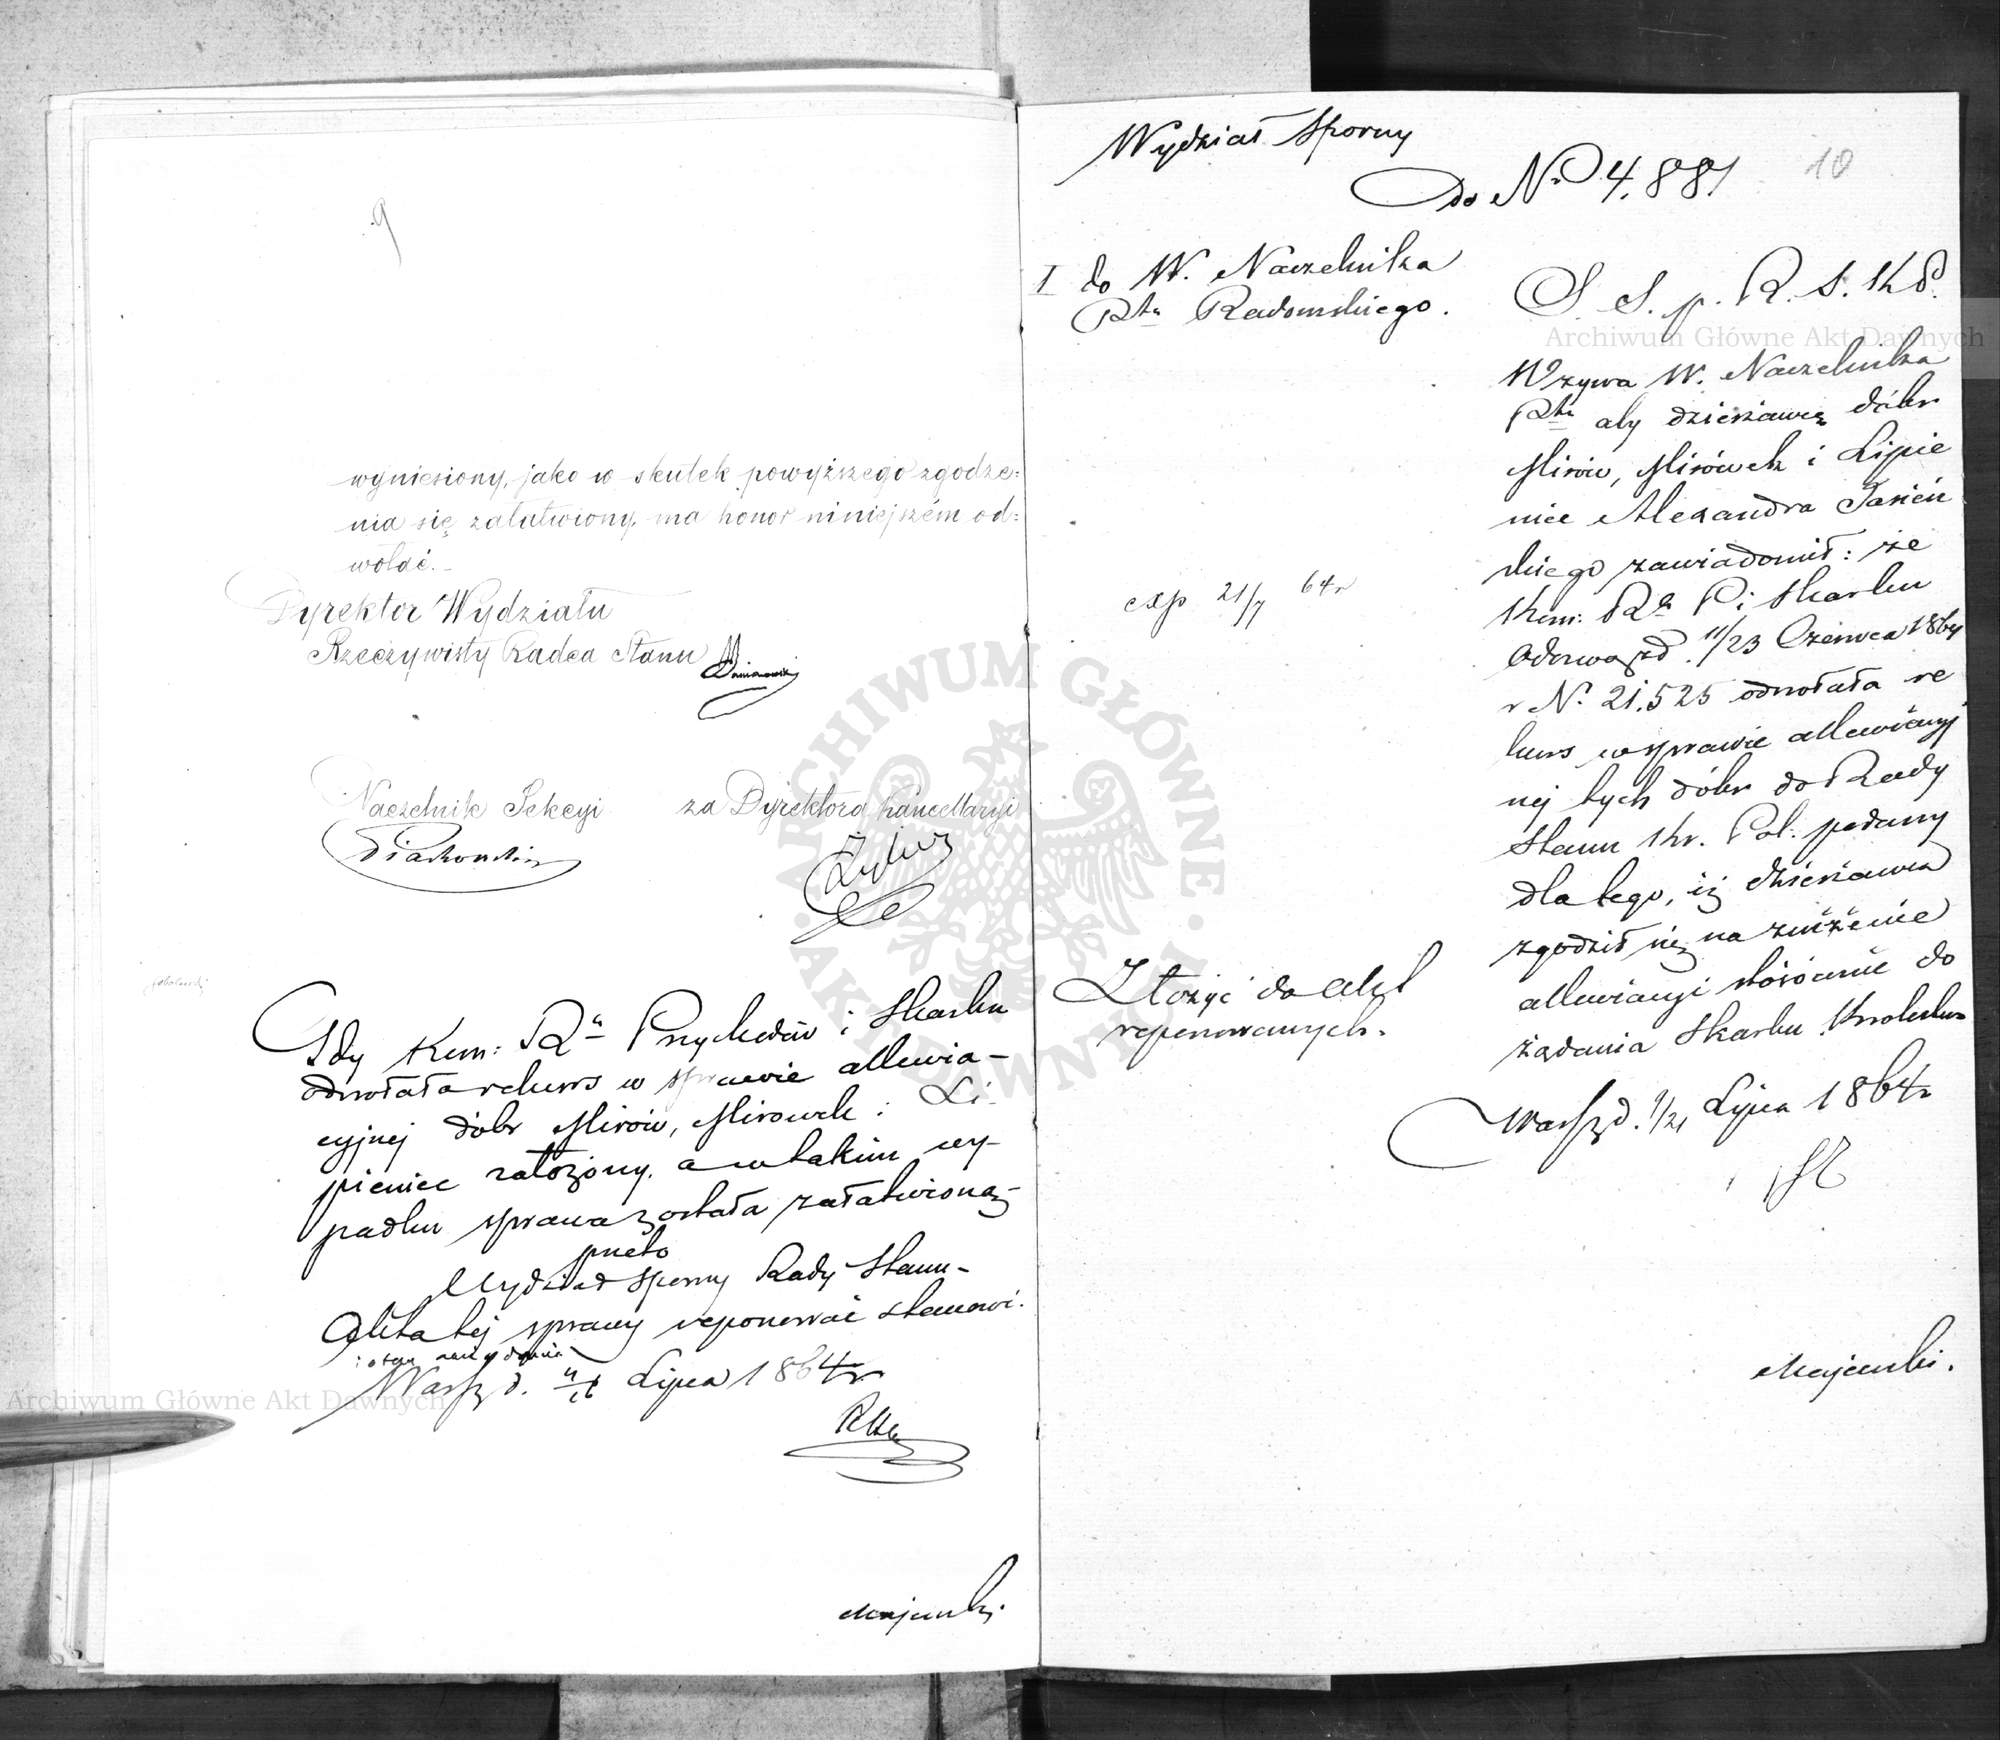 9
wyniesiony, jako w skutek powyższego zgodze:
nia się załatwiony, ma honor niniejszém od:
wołać.
Dyrektor Wydziału
Rzeczywisty Radca Stanu
Naczelnik Sekcyi za Dyrektora Kancellaryi
Gdy Kom: R. Przychodów i Skarbu
odwołała rekurs w sprawie allewia-
cyjnej dóbr Mirów, Mirówek i Li-
pieniec założony, a w takim wy-
padku sprawa została załatwioną,
przeto
Wydział Sporny Rady Stanu
Akta tej sprawy reponować stanowi.
Warsz d. Lipca 1864 r
Majewski.
Wydział Sporny
do No 4,881
10
I do W. Naczelnika
Ptu Radomskiego.
S. S. p. R. S. K P.
Wzywa W. Naczelnika
Ptu aby dzierżawcę dóbr
Mirów, Mirówek i Lipie
niec Alexandra Jasień
skiego zawiadomił: że
Kom: R. P. i Skarbu
Odezwą z d. 11/23 Czerwca 1864
r N. 21,525 odwołała re
kurs w sprawie allewiacyj
nej tych dóbr do Rady
Stanu Kr. Pol. podany
dla tego, iż dzierżawca
zgodził się na zniżenie
allewiacyi stósównie do
żądania Skarbu Królestwa
Warsz d. 9/21 Lipca 1864 r
exp 21/7 64 r
Złożyć do akt
reponowanych.
Majewski.
Archiwum Główne Akt Dawnych
Archiwum Główne Akt Dawnych
ARCHIWUM GŁÓWNE AKT DAWNYCH